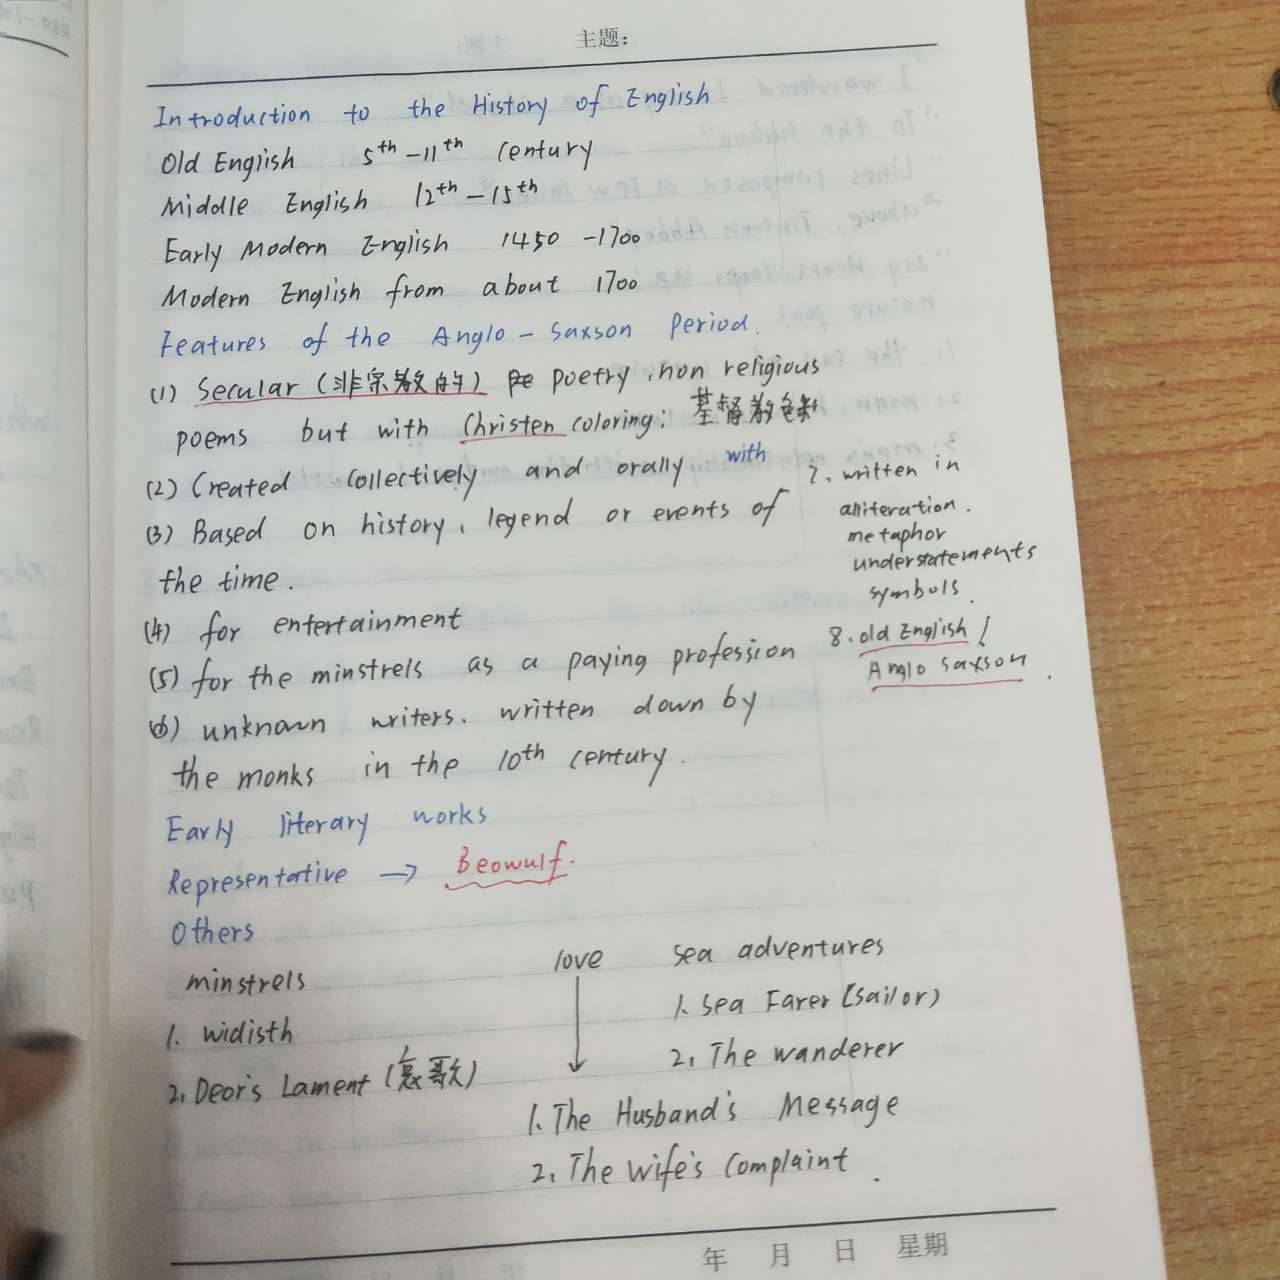 主题:
Introduction to the History of English
Old English 5th-11th century
Middle English 12th-15th
Early Modern English 1450-1700
Modern English from about 1700
Features of the Anglo-Saxson Period.
(1) Secular (非宗教的) poetry, non religious
poems but with Christen coloring: 基督教色彩
(2) Created collectively and orally with
(3) Based on history, legend or events of
the time.
(4) for entertainment
(5) for the minstrels as a paying profession
(6) unknown writers. written down by
the monks in the 10th century.
7. written in
alliteration.
metaphor
understatements
symbols.
8. old English /
Anglo saxson.
Early literary works
Representative → Beowulf.
Others
minstrels
1. widisth
2. Deor's Lament (哀歌)
love
1. The Husband's Message
2. The wife's complaint.
sea adventures
1. sea Farer (sailor)
2. The wanderer
年 月 日 星期